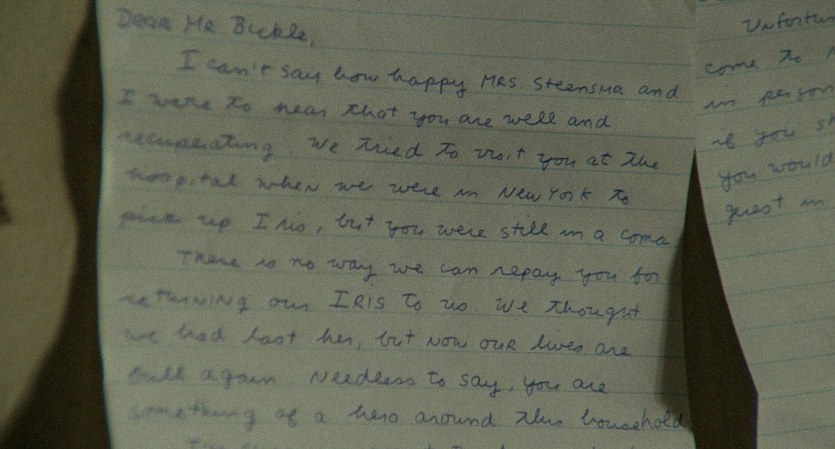 Dear Mr Bickle,
I can't say how happy MRS. Steensma and
I were to hear that you are well and
recuperating We tried to visit you at the
hospital when we were in New York to
pick up Iris, but you were still in a coma
There is no way we can repay you for
returning our IRIS to us. We thought
we had lost her, but now our lives are
full again Needless to say, you are
something of a hero around this household
come to
in person
if you
you would
guest in